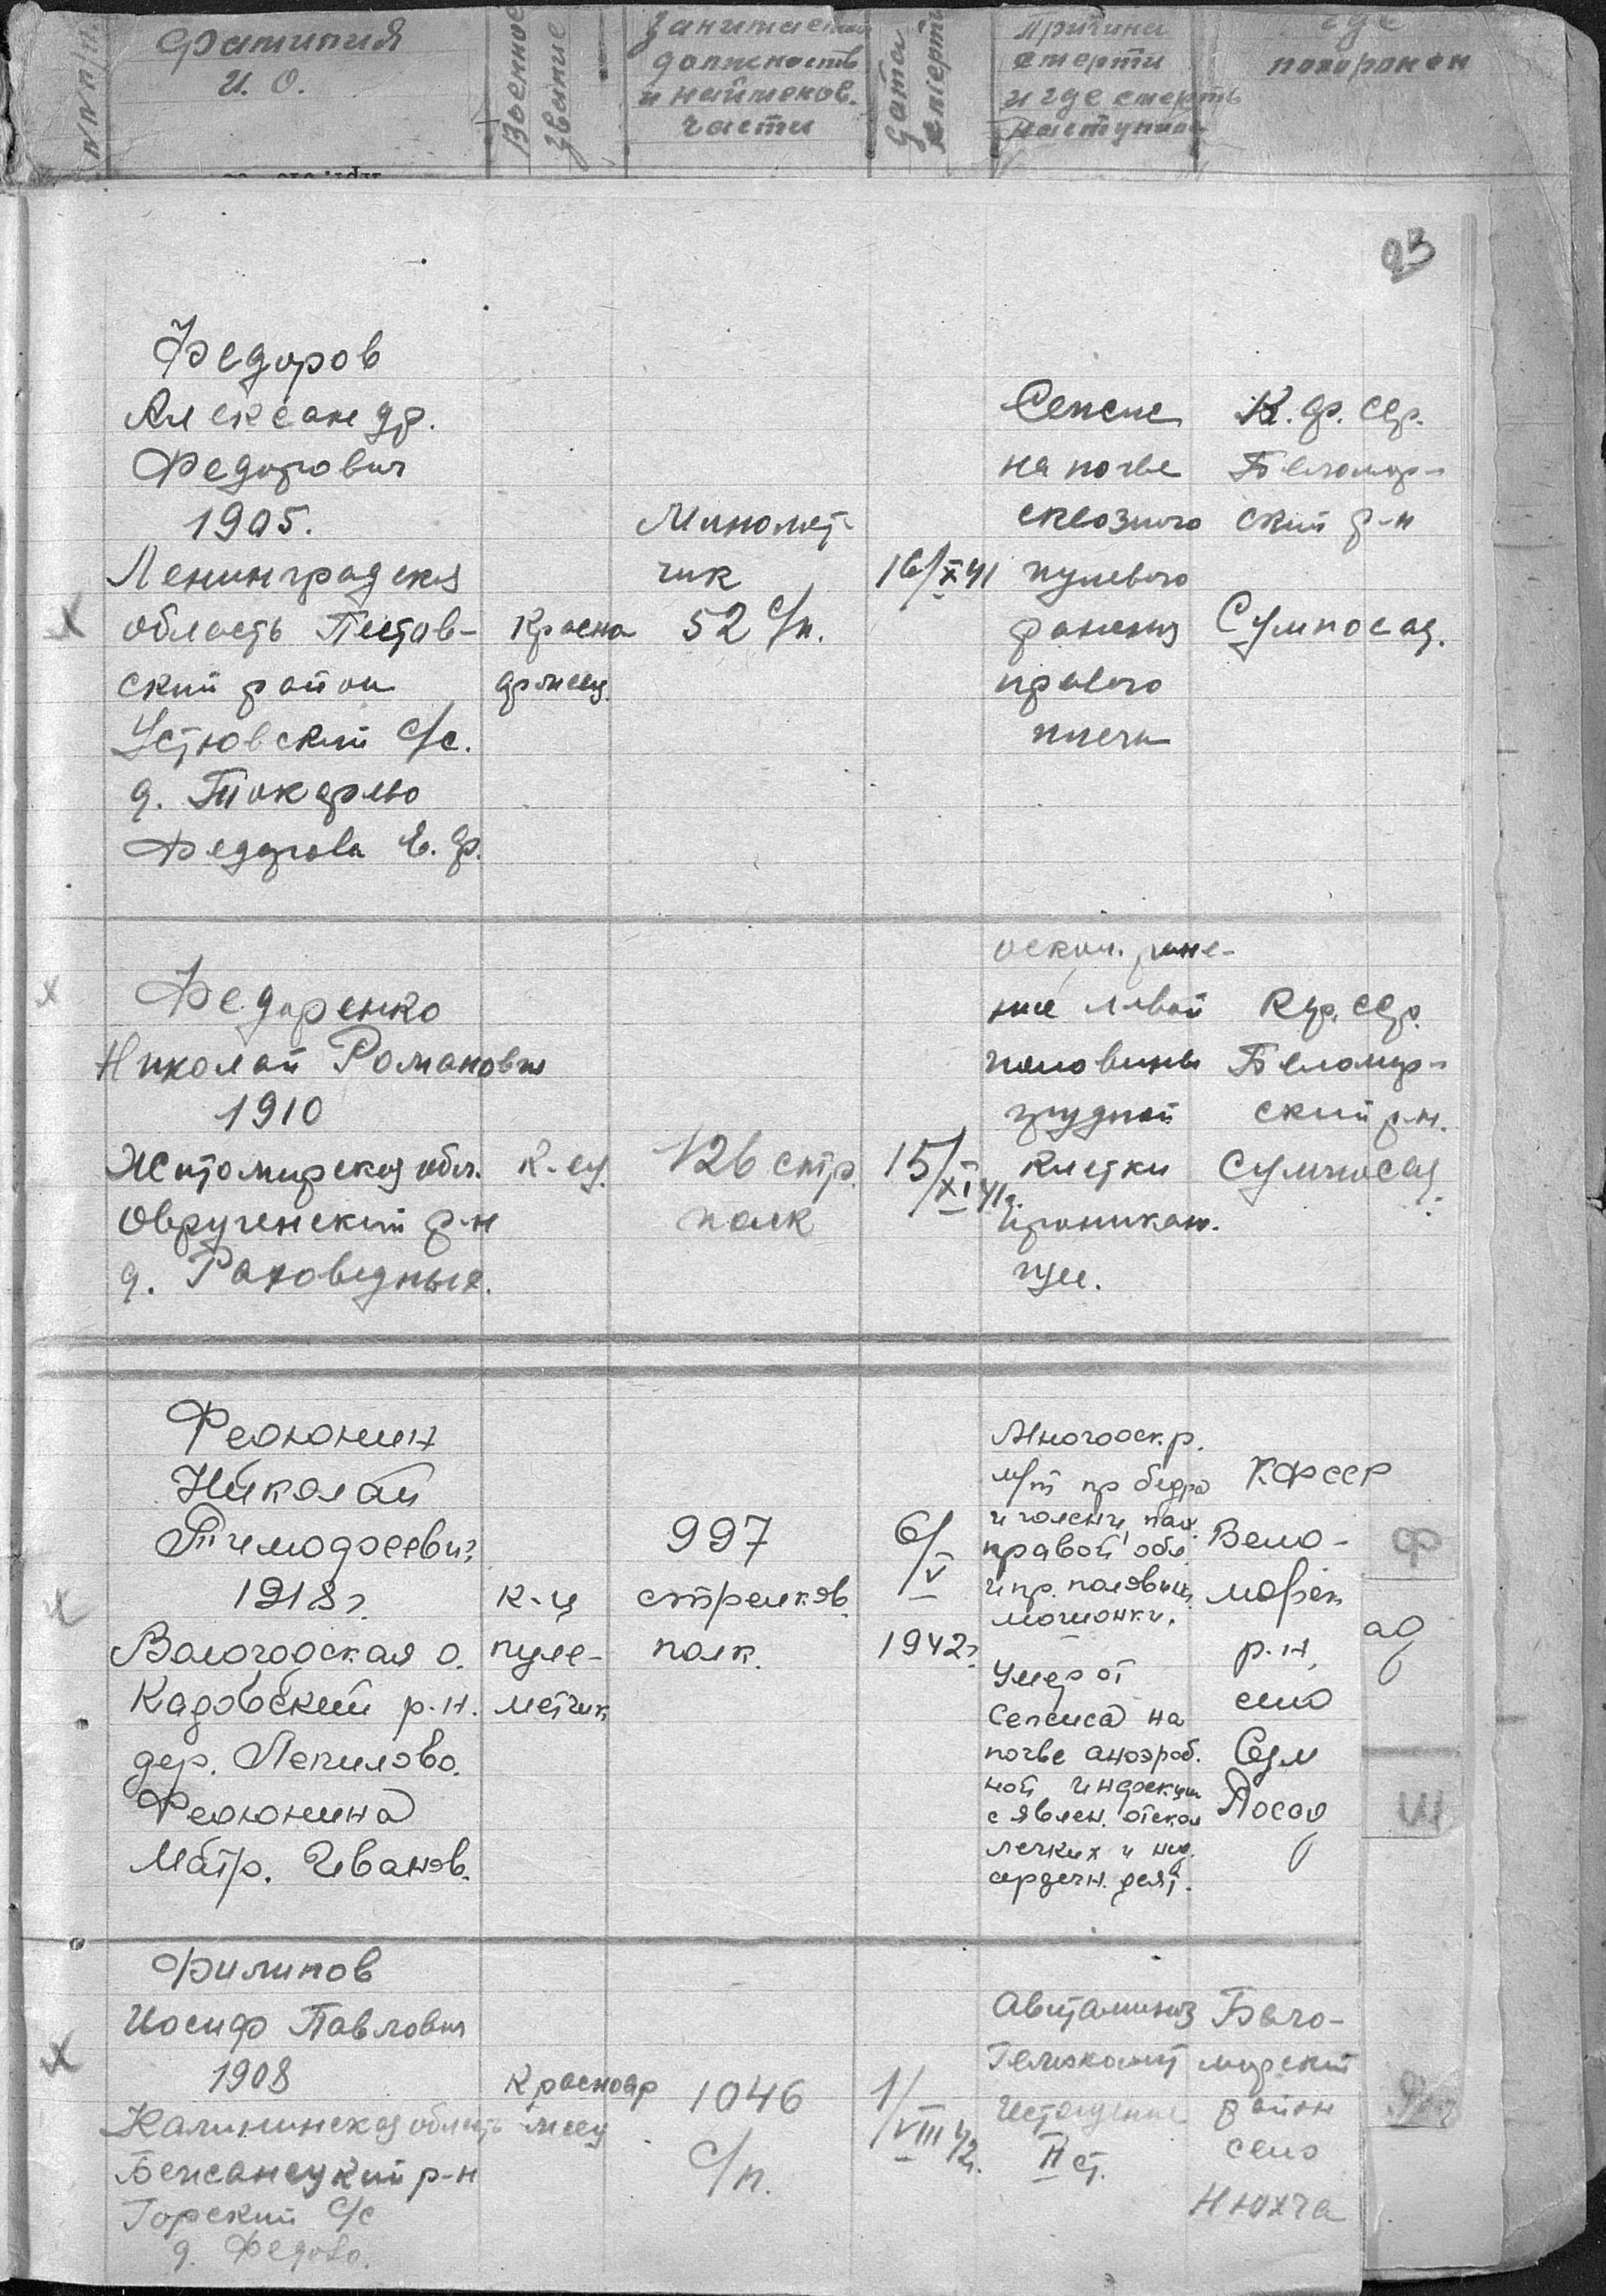 № п/п.
Фамилия
И. О.
Военное
звание
Занимаемая
должность
и наименов.
части
Дата
смерти
Причина
смерти
и где смерть
наступила
где
похоронен
23
Федоров
Александр.
Федорович
1905.
Ленинградская
область Пестов-
ский район
Устювский с/с.
д. Токарево
Федорова Е. Ф.
Красно
армеец
Миномет-
чик
52 с/п.
16/X 41
Сепсис
на почве
сквозного
пулевого
ранения
правого
плеча
К. ф. сср.
Беломор-
ский р-н
Сумпосад.
Федоренко
Николай Романович
1910
Житомирская обл.
Овручский р-н
д. Раковедных.
К-ец
126 стр.
полк
15/XI 41г.
оскол. ране-
ние левой
половины
грудной
клетки
проникаю.
щее.
К.ф. сср.
Беломор-
ский р-н.
Сумпосад.
Федюнин
Николай
Тимофеевич
1918 г.
Вологодская о.
Кадовский р-н.
дер. Лепилово.
Федюнина
Матр. Иванов.
к-ц
пуле-
метчик
997
стрелков.
полк.
6/V
1942 г.
Многооск. р.
м/т пр бедра
и голени, пах.
правой обл.
и пр. половин.
мошонки.
Умер от
Сепсиса на
почве анаэроб.
ной инфекции
с явлен. отека
легких и нед.
сердечн. деят.
КФССР
Бело-
морск
р-н,
село
Сум
Посад
Ф
Ш
Филипов
Иосиф Павлович
1908
Калининская область
Бежанецкий р-н
Горский с/с
д. Федово.
Краснояр
меец
1046
с/п.
1/VIII 42.
Авитаминоз
Гемоколит
Истощение
II ст.
Бело-
морский
район
село
Нюхча